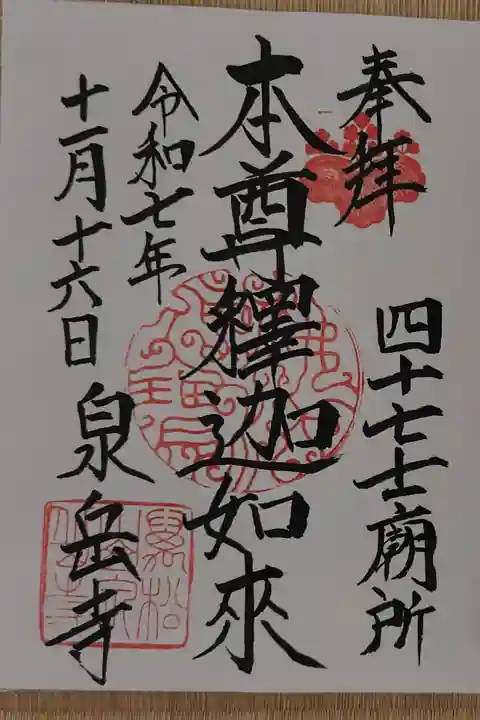 奉拜
四十七士廟所
本尊釋迦如來
令和七年
十一月十六日
泉岳寺